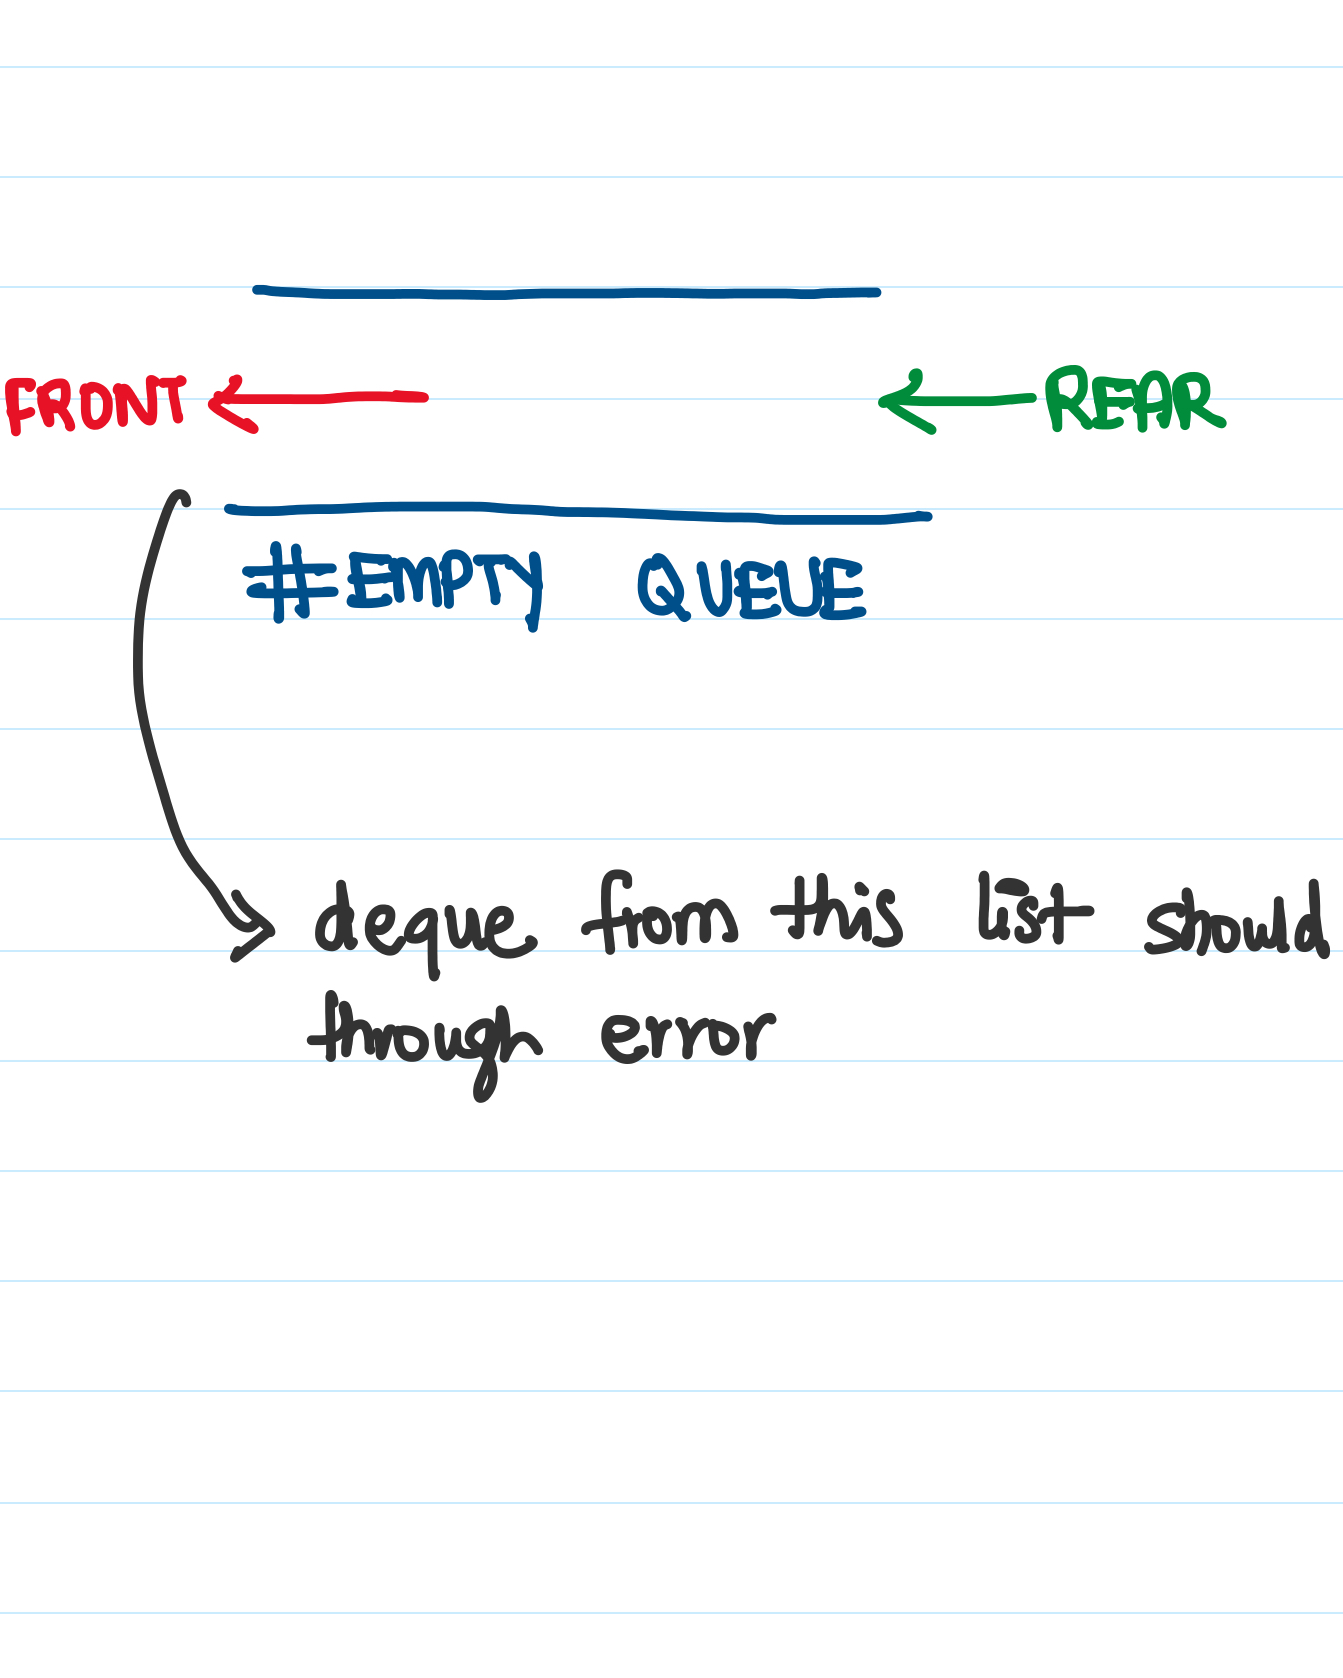 FRONT
REAR
#EMPTY QUEUE
deque from this list should
through error